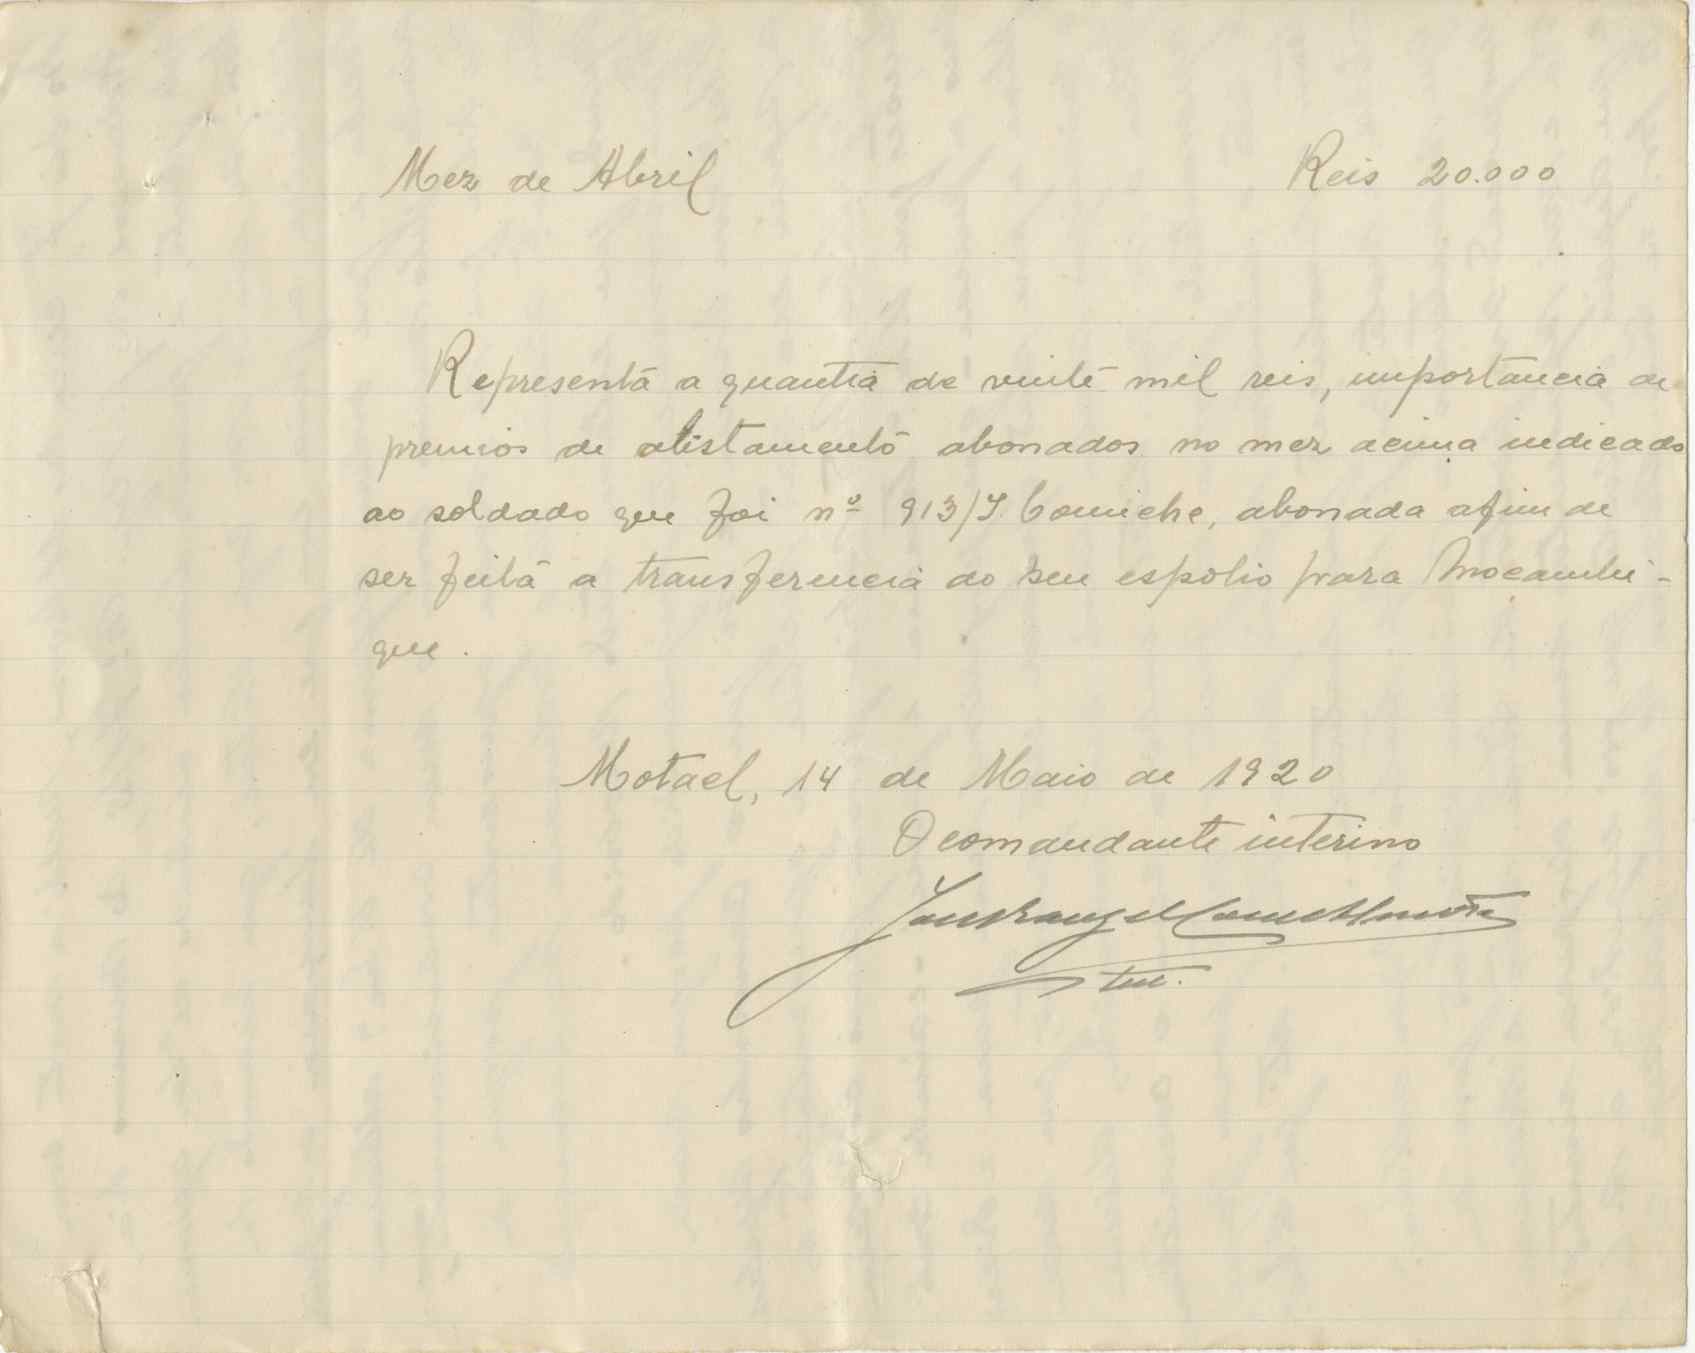 Mez de Abril Reis 20.000
Representa a quantia de vinte mil reis, importancia de
premios de alistamento abonados no mez acima indicado
ao soldado que foi nº 913/I. Comiche, abonada afim de
ser feita a transferencia do seu espolio para Moçambi-
que.
Motael, 14 de Maio de 1920
O comandante interino
ten.